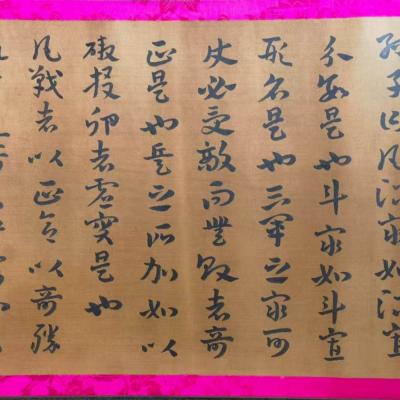 孫子曰凡治眾如治寡
分數是也斗眾如斗寡
形名是也三軍之眾可
使必受敵而無敗者奇
正是也兵之所加如以
碬投卵者虛實是也
凡戰者以正合以奇勝